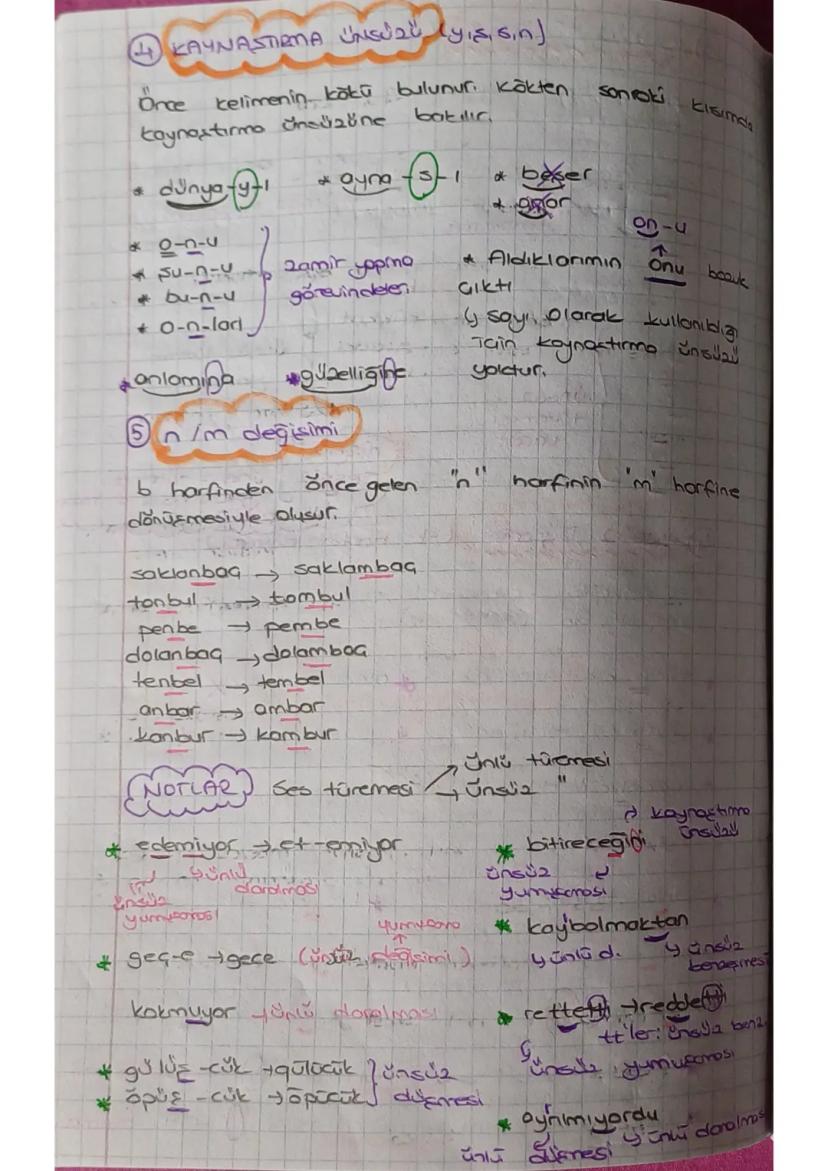 4 KAYNAŞTIRMA ÜNSÜZÜ (y,ş,s,n)
Önce kelimenin kökü bulunur. Kökten sonraki kısımda
kaynaştırma ünsüzüne bakılır.
* dünya-y-ı * ayna-s-ı * beşer
* aşar
* o-n-u
* şu-n-u
* bu-n-u
* o-n-ları
zamir yapma
görevindeler.
on-u
* Aldıklarımın onu bozuk
çıktı
↳ sayı olarak kullanıldığı
için kaynaştırma ünsüzü
yoktur.
* anlamına * güzelliğine
5 n/m değişimi
b harfinden önce gelen "n" harfinin "m" harfine
dönüşmesiyle oluşur.
saklanbaç → saklambaç
tonbul → tombul
penbe → pembe
dolanbaç → dolambaç
tenbel → tembel
anbar → ambar
kanbur → kambur
NOTLAR Ses türemesi → ünlü türemesi
→ ünsüz "
* edemiyor → et-emiyor
↳ ünlü
daralması
ünsüz
yumuşaması
* bitireceğini
→ kaynaştırma
ünsüzü
ünsüz
yumuşaması
* geç-e → gece (ünsüz değişimi)
yumuşama
* kaybolmaktan
↳ ünlü d. ↳ ünsüz
benzeşmesi
kokmuyor → ünlü daralması
* rettetti → reddetti
tt'ler: ünsüz benz.
ünsüz yumuşaması
* gülüş-cük → gülücük
* öpüş-cük → öpücük
ünsüz
düşmesi
* ayrılmıyordu
↳ ünlü daralması
ünlü düşmesi